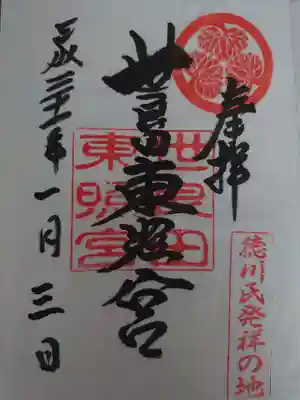 奉拝
徳川氏発祥の地
世良田東照宮
世良田
東照宮
平成三十一年一月三日